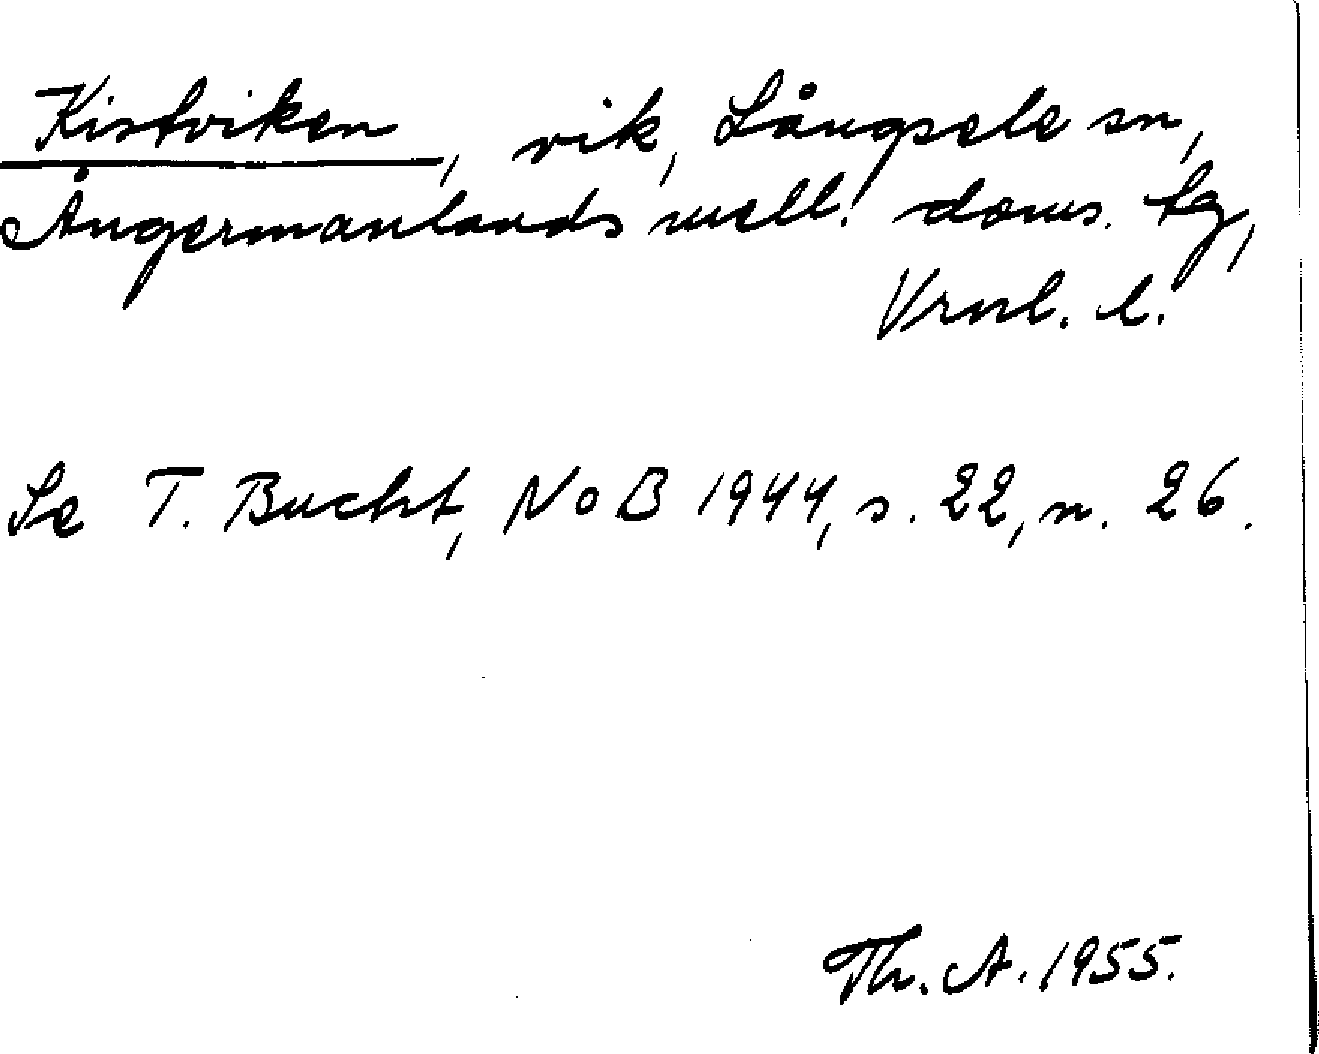 Kistviken, vik, Långsele sn,
Ångermanlands mell. doms. tg,
Vrnl. l.
Se T. Bucht, NoB 1944, s. 22, n. 26.
Th. A. 1955.